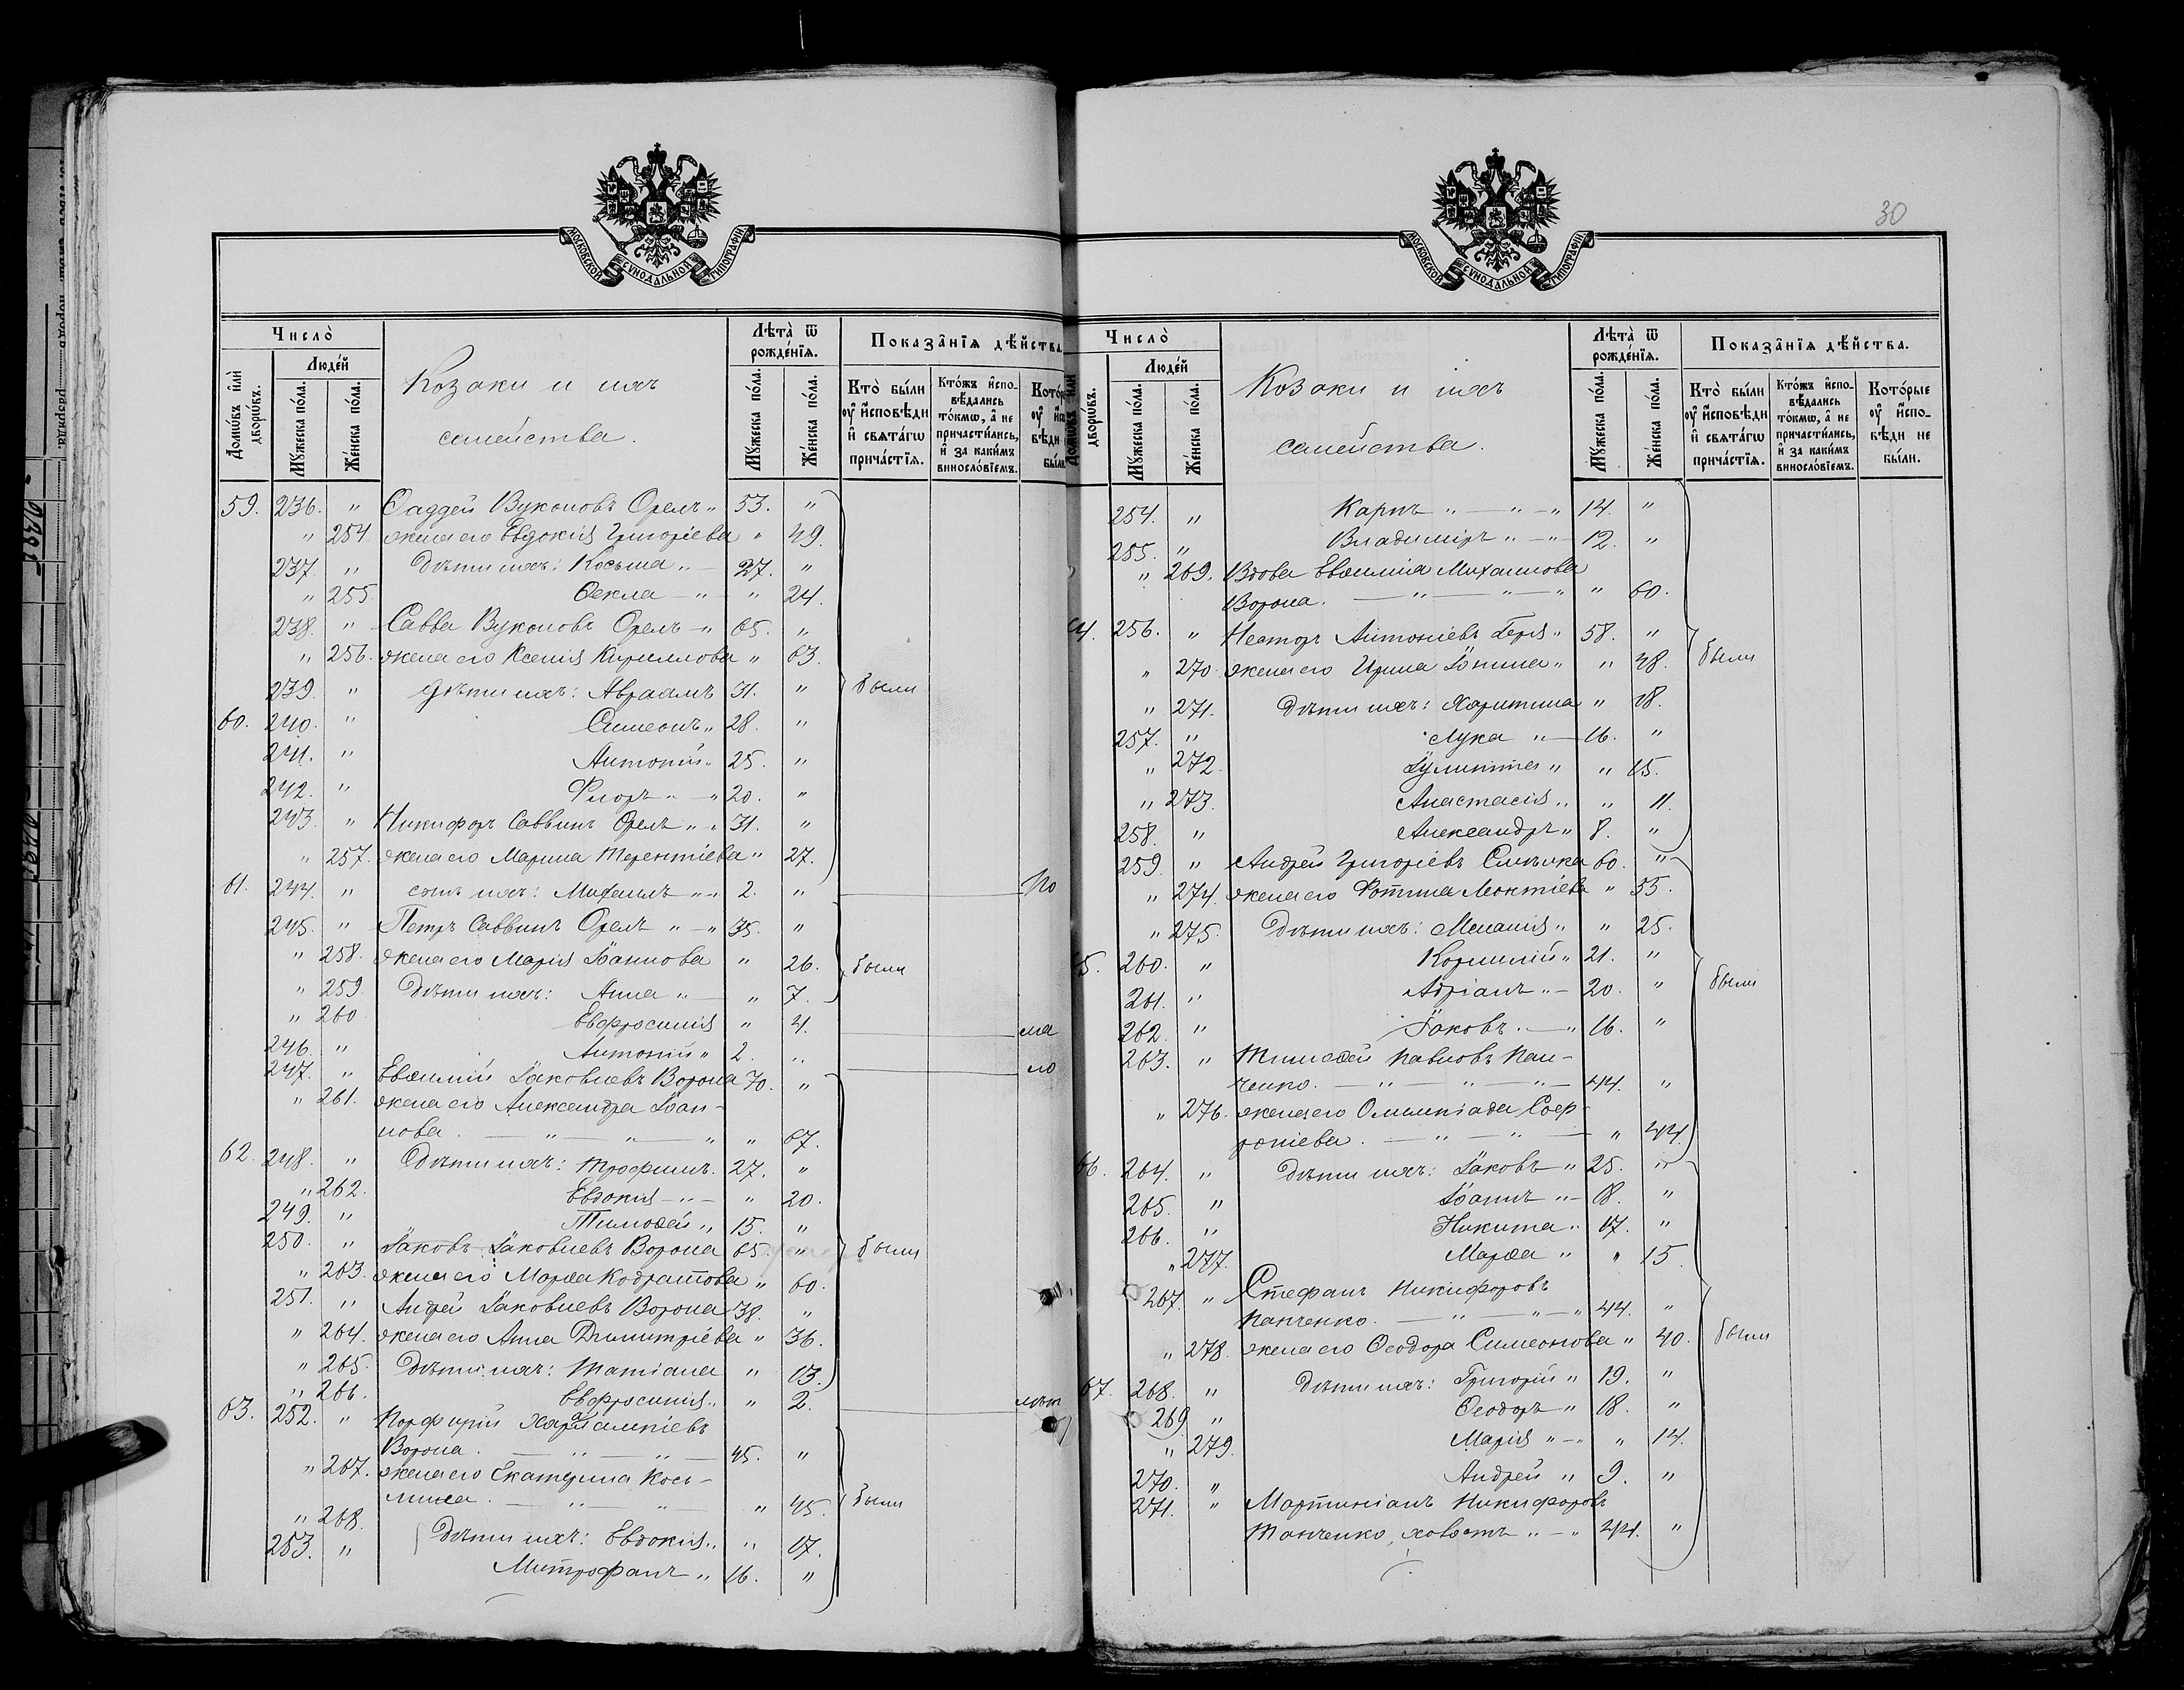 МОСКОВСКОЙ СѴНОДАЛЬНОЙ ТИПОГРАФІИ
Число̀
Домѡ́въ и҆лѝ дворѡ́въ.
Люде́й
Мꙋ́жеска по́ла.
Же́нска по́ла.
Козаки и ихъ
семейства.
Лѣта̀ ѿ рожде́нїѧ.
Мꙋ́жеска по́ла.
Же́нска по́ла.
Показа̑нїѧ дѣ́йства.
Кто̀ бы́ли ᲂу҆ и҆сповѣ́ди и҆ свѧта́гѡ прича́стїѧ.
Кто́жъ и҆спо-вѣ́дались то́кмѡ, а҆ не причасти́лись, и҆ за каки́мъ винословїемъ.
59. 236. " Ѳаддей Вуколовъ Орелъ " 53. "
" 254. жена его Евдокія Григоріева " 49.
237. " Дѣти ихъ: Косьма " 27. "
" 255 Ѳекла — " — " 24.
238. " Савва Вуколовъ Орелъ — " 65. "
" 256. жена его Ксенія Кириллова " 63.
239. " Дѣти ихъ: Авраамъ 31. " были
60. 240. " Симеонъ " 28. "
241. " Антоній " 25. "
242. " Флоръ " — " 20. "
243. " Никифоръ Саввинъ Орелъ " " 31. "
" 257. жена его Марина Терентіева " 27.
61. 244. " сынъ ихъ: Михаилъ " " 2. " По
245. " Петръ Саввинъ Орелъ " — " 35. "
" 258. жена его Марія Іоаннова " 26. были
" 259 Дѣти ихъ: Анна " — " 7.
" 260 Евфросинія " 4. ма
246. " Антоній " 2. " ло
247. " Евѳимій Іаковлевъ Ворона 70. "
" 261. жена его Александра Іоан-
нова. — " — " — " " 67.
62. 248. " Дѣти ихъ: Трофимъ. 27. "
" 262. Евдокія — " — " 20.
249. " Тимоѳей " 15. "
250. " Іаковъ Іаковлевъ Ворона 65. " были
" 263. жена его Марѳа Кодратова " 60.
251. " Андрей Іаковлевъ Ворона 38. "
" 264. жена его Анна Димитріева " 36.
" 265. Дѣти ихъ: Татіана " 13.
" 266. Евфросинія " " 2. лѣт
63. 252. " Порфирій Харлампіевъ
Ворона. — " — " — 45. "
" 267. жена его Екатерина Кось-
мина. — " — " " 45. были
" 268. Дѣти ихъ: Евдокія " " 17.
253. " Митрофанъ " 16. "
30
МОСКОВСКОЙ СѴНОДАЛЬНОЙ ТИПОГРАФІИ
Число̀
дворѡ́въ.
Люде́й
Мꙋ́жеска по́ла.
Же́нска по́ла.
Козаки и ихъ
семейства.
Лѣта̀ ѿ рожде́нїѧ.
Мꙋ́жеска по́ла.
Же́нска по́ла.
Показа̑нїѧ дѣ́йства.
Кто̀ бы́ли ᲂу҆ и҆сповѣ́ди и҆ свѧта́гѡ прича́стїѧ.
Кто́жъ и҆спо-вѣ́дались то́кмѡ, а҆ не причасти́лись, и҆ за каки́мъ винословїемъ.
Кото́рые ᲂу҆ и҆спо-вѣ́ди не бы́ли.
254. " Карпъ " — " — " 14. "
255. " Владиміръ " — " — 12. "
" 269. Вдова Евѳимія Михаилова
Ворона. — " — " — " " 60.
4. 256. " Несторъ Антоніевъ " 58. "
" 270. жена его Ирина " " 48. были
" 271. Дѣти ихъ: Харитина " 18.
257. " Лука " — 16. "
" 272. Іулитта " " 15.
" 273. Анастасія " " 11.
258. " Александръ " 8. "
259. " Андрей Григоріевъ 60. "
" 274. жена его Фотина Леонтіева " 55.
" 275. Дѣти ихъ: Меланія " " 25.
5. 260. " Корнилій " 21. "
261. " Адріанъ " — 20. " были
262. " Іаковъ. — " 16. "
263. " Тимоѳей Павловъ Пан-
ченко. — " — " — " — 44. "
" 276. жена его Олимпіада Соф-
роніева. — " — " — " 44.
66. 264. " Дѣти ихъ: Іаковъ " 25. "
265. " Іоаннъ " — 18. "
266. " Никита " 17. "
" 277. Марѳа " " 15
267. " Стефанъ Никифоровъ
Панченко. — " — " — " 44. "
" 278. жена его Ѳеодора Симеонова " 40. были
67. 268. " Дѣти ихъ: Григорій " 19. "
269 " Ѳеодоръ " 18. "
" 279. Марія " — " " 14.
270. " Андрей " 9. "
271. " Мартиніанъ Никифоровъ
Панченко, холостъ " — " 44. "